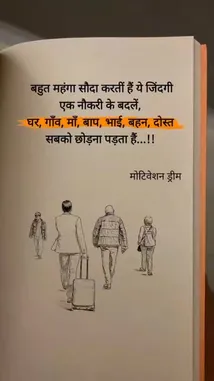 बहुत महंगा सौदा करतीं हैं ये जिंदगी
एक नौकरी के बदलें,
घर, गाँव, माँ, बाप, भाई, बहन, दोस्त
सबको छोड़ना पड़ता हैं...!!
मोटिवेशन ड्रीम